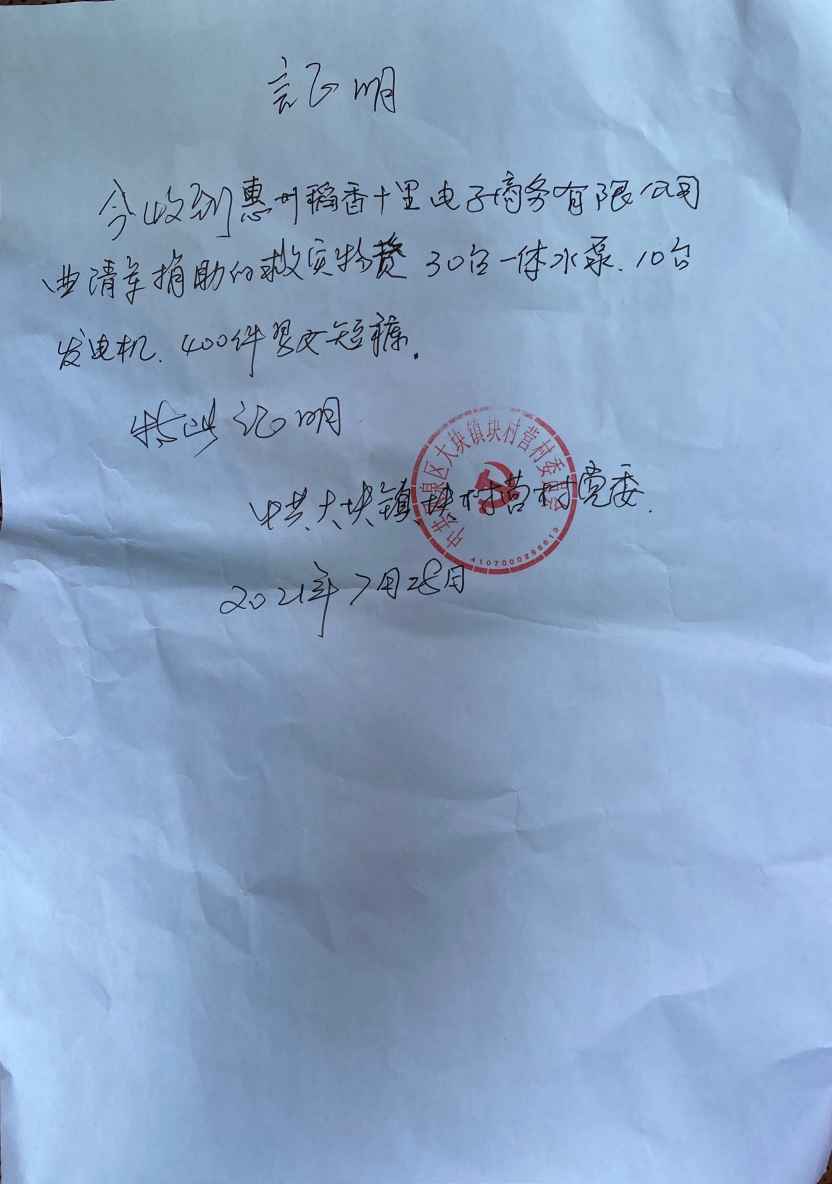 证明
今收到惠州稻香十里电子商务有限公司
曲清军捐助的救灾物资 30台一体水泵、10台
发电机、400件男女短裤。
特此证明
中共大块镇块村营村党委.
2021年7月28日
泉区大块镇块村营村委员会